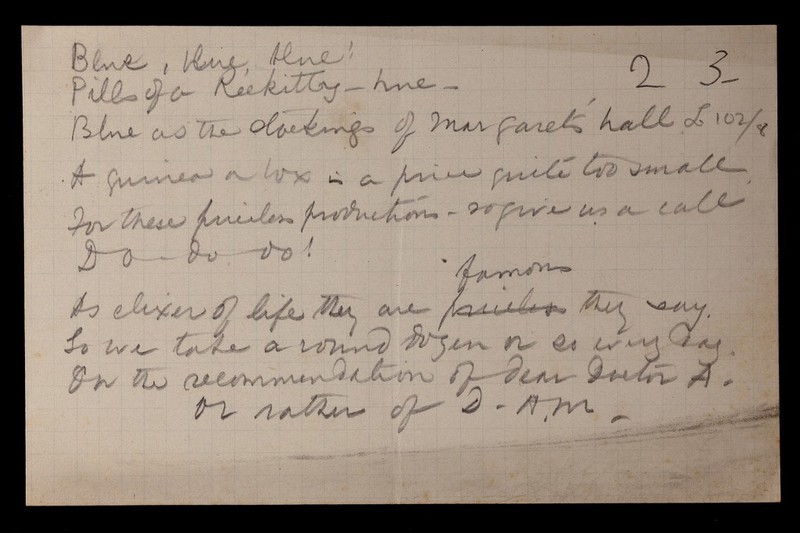 Blue, blue, blue!
Pills of a Reckitty-hue- 2 3
Blue as the stockings of Margaret's hall £102/
A guinea a box is a price quite too small
For these priceless productions - so give us a call
Do - do - do!
famous
As elixer of life they are priceless they say.
So we take a round dozen or so every day.
On the recommendation of dear Doctor A.
Or rather of D-A.M.